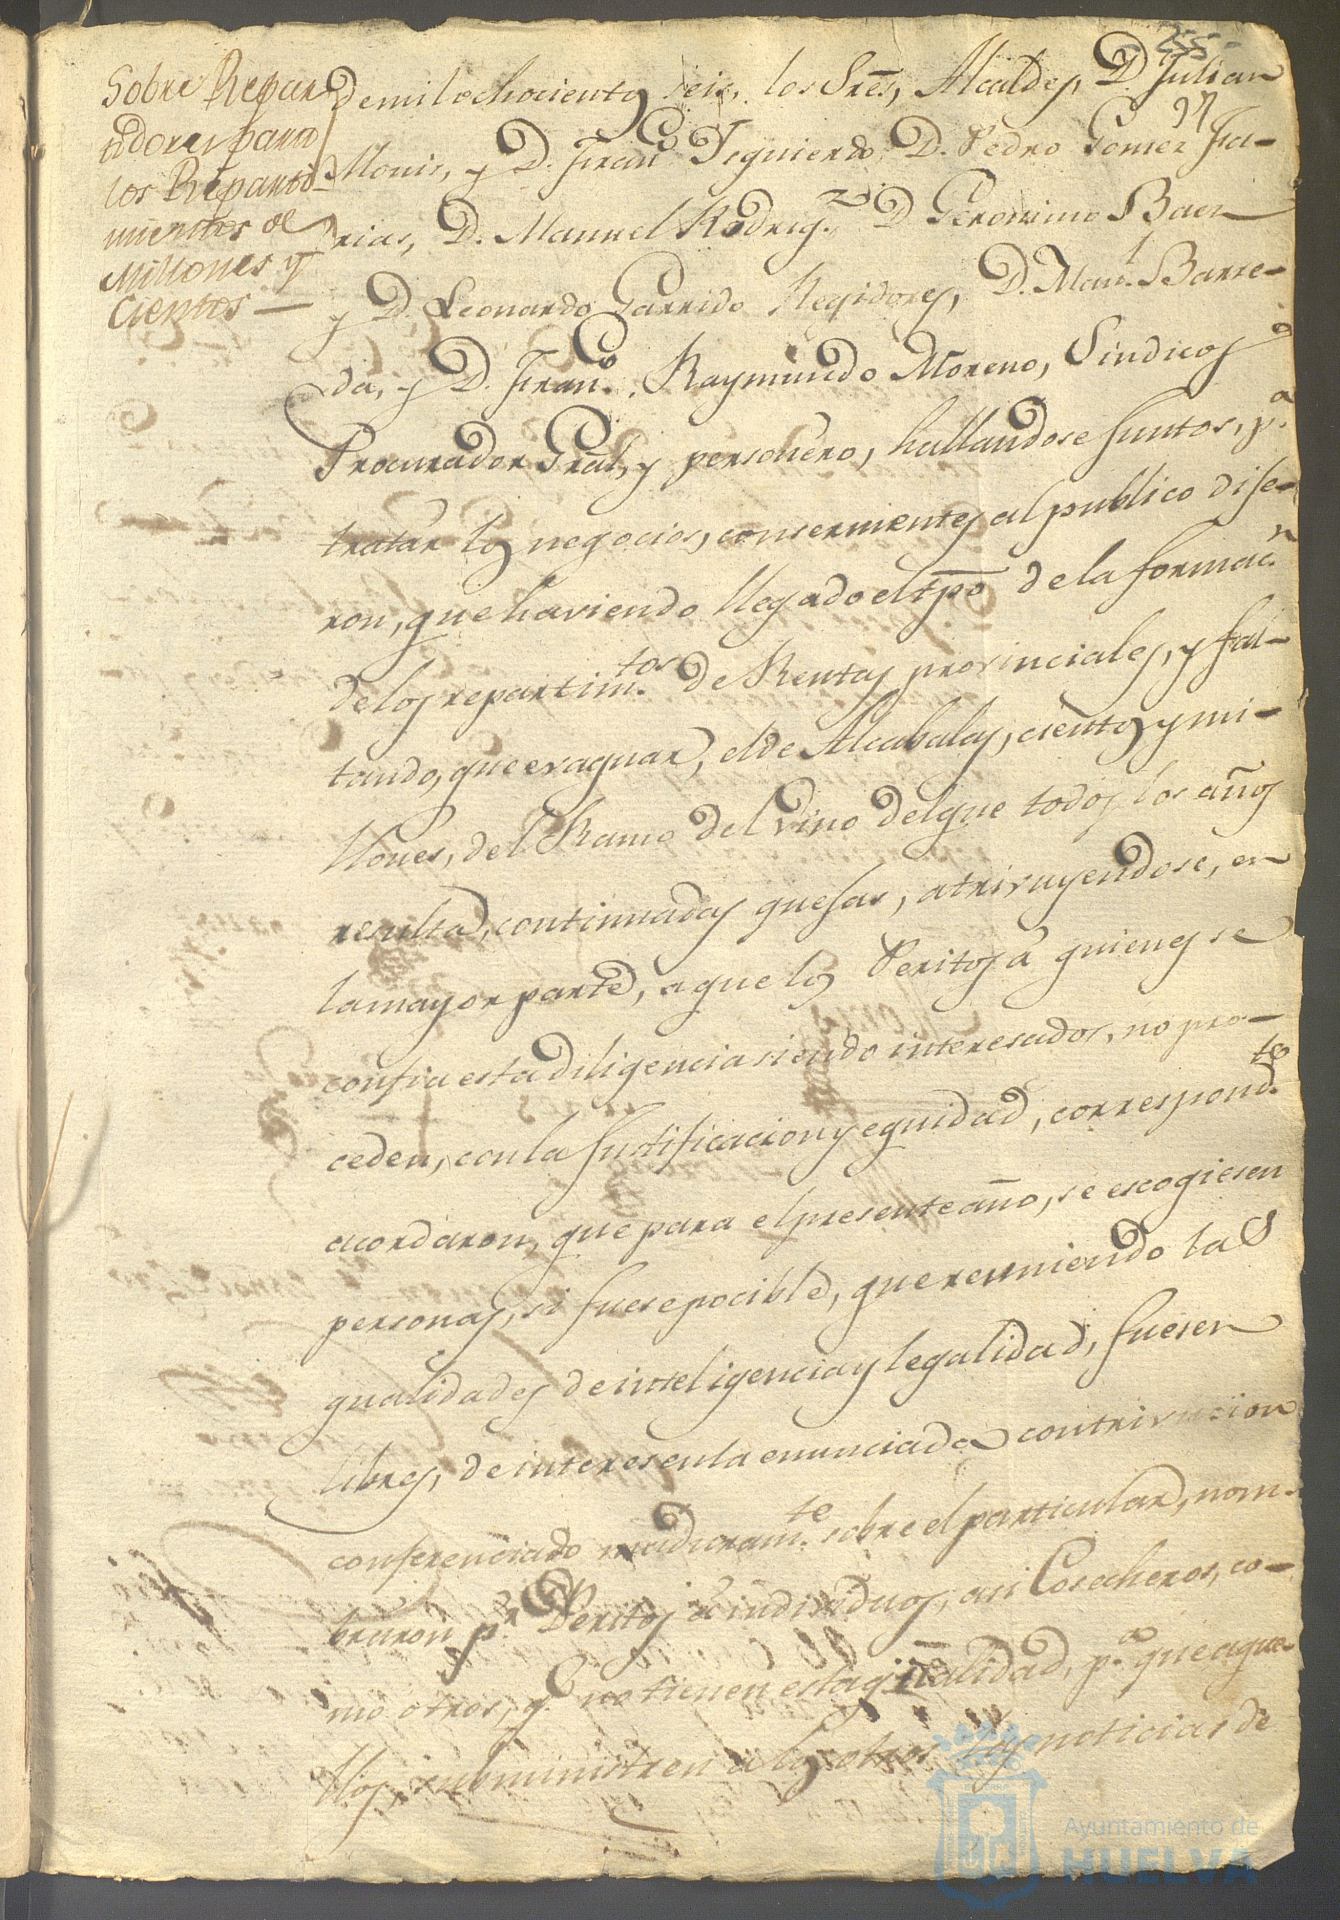 255
Sobre Repar
tidores para
los Reparti-
mientos de
Millones y
Cientos —
de mil ochocientos seis, los Sres, Alcaldes, D. Julian
Monis, y D. Franco Izquierdo, D. Pedro Gomez Fa-
rias, D. Manuel Rodrigz. D. Geronimo Baen
y D. Leonardo Garrido Regidores, D. Manl. Barre-
da, y D. Franco. Raymundo Moreno, Sindicos
Procurador Gral, y personero, hallandose Juntos, pa.
tratar los negocios, consernientes al publico dije-
ron, que haviendo llegado el tpo de la formacn.
de los repartimtos. de Rentas provinciales, y fal-
tando, que evaquar, el de Alcabalas, cientos y mi-
llones, del Ramo del vino del que todos los años
resulta, continuadas quejas, atrivuyendose, en
la mayor parte, a que los Peritos a quienes se
confia esta diligencia siendo interesados, no pro-
ceden, con la Justificacion y equidad, correspondte.
acordaron, que para el presente año, se escogiesen
personas, si fuese pocible, que reuniendo las
qualidades de inteligencia y legalidad, fuesen
libres, de interes en la enunciada contrivucion
conferenciado maduramte. sobre el particular, nom-
braron pr. Peritos a individuos, asi Cosecheros, co-
mo otros, q. no tienen esta qualidad, pa. que aque-
llos, subministren a los otros las noticias de
Ayuntamiento de
HUELVA